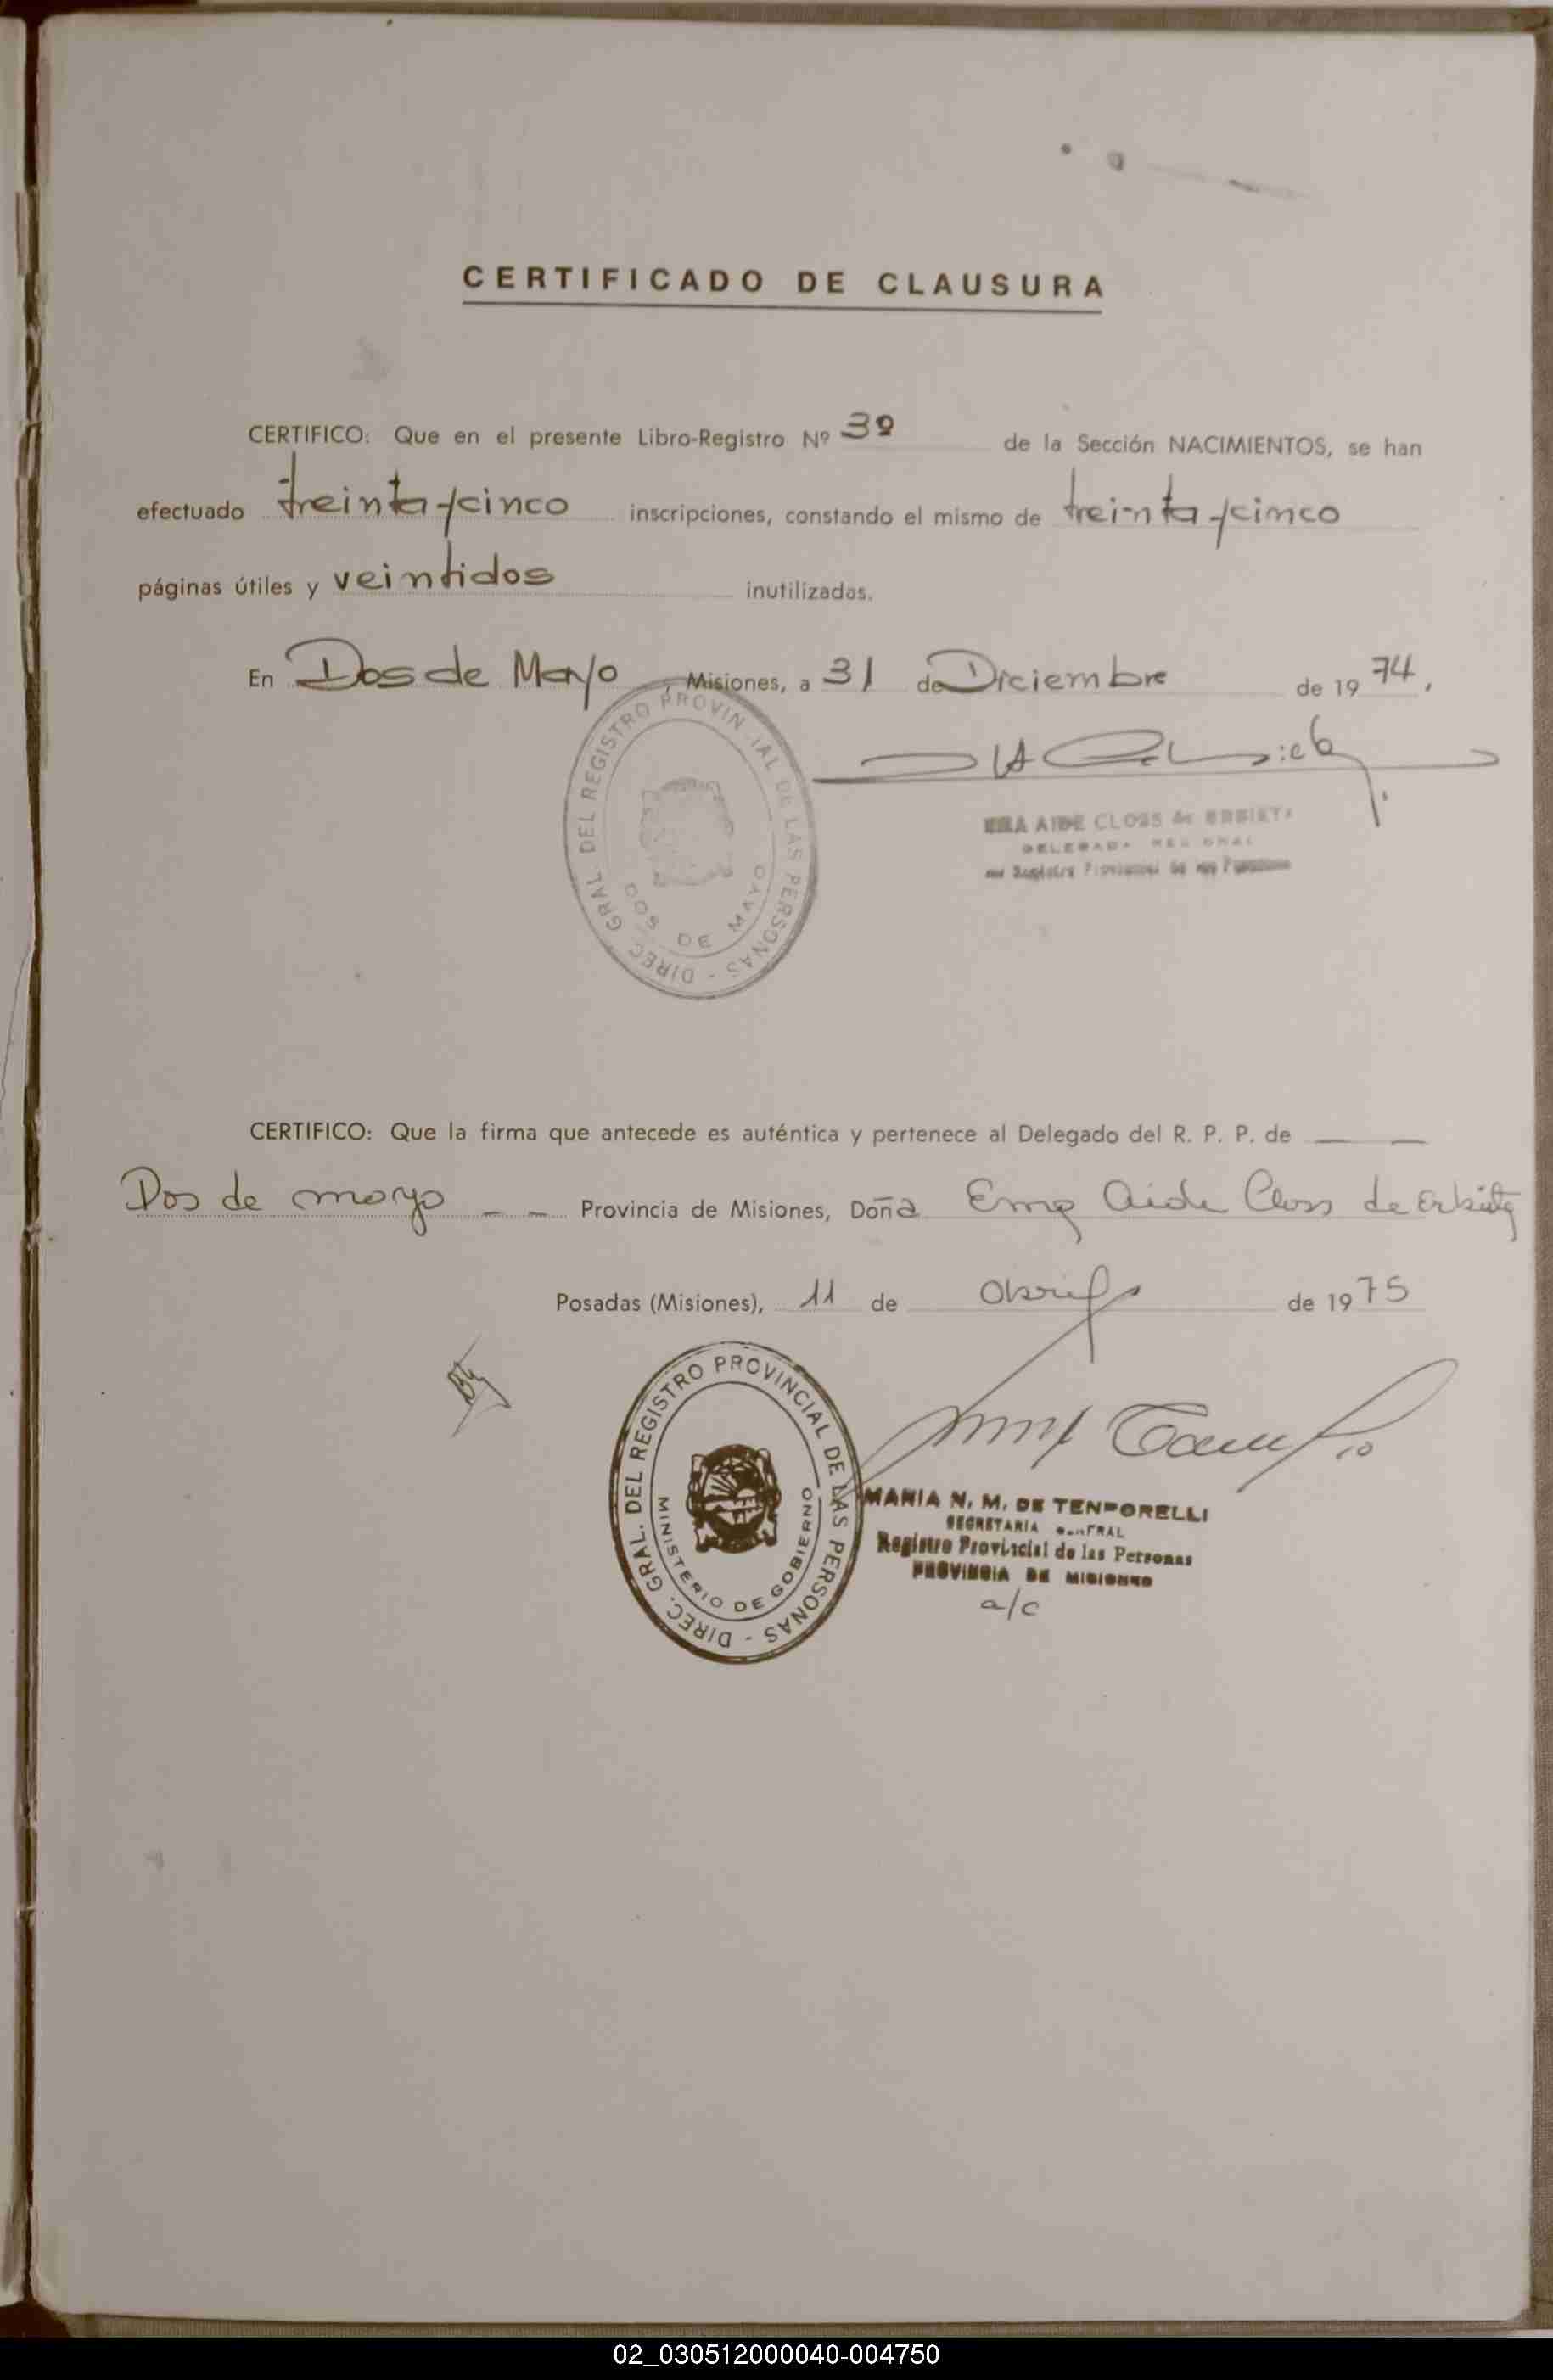 CERTIFICADO DE CLAUSURA
CERTIFICO: Que en el presente Libro-Registro Nº 3º de la Sección NACIMIENTOS, se han
efectuado treinta y cinco inscripciones, constando el mismo de treinta y cinco
páginas útiles y veintidos inutilizadas.
En Dos de Mayo, Misiones, a 31 de Diciembre de 1974.
DIREC. GRAL. DEL REGISTRO PROVINCIAL DE LAS PERSONAS -
DOS DE MAYO
AIDE CLOSS de
CERTIFICO: Que la firma que antecede es auténtica y pertenece al Delegado del R. P. P. de
Dos de mayo -- Provincia de Misiones, Doña Ema Aide Closs de Erbieta
Posadas (Misiones), 11 de Abril de 1975
DIREC. GRAL. DEL REGISTRO PROVINCIAL DE LAS PERSONAS -
MINISTERIO DE GOBIERNO
MARIA N. M. DE TEMPORELLI
SECRETARIA GENERAL
Registro Provincial de las Personas
PROVINCIA DE MISIONES
a/c
02_030512000040-004750